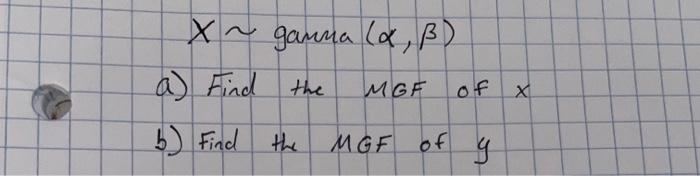 X ~ gamma (α, β)
a) Find the MGF of x
b) Find the MGF of y